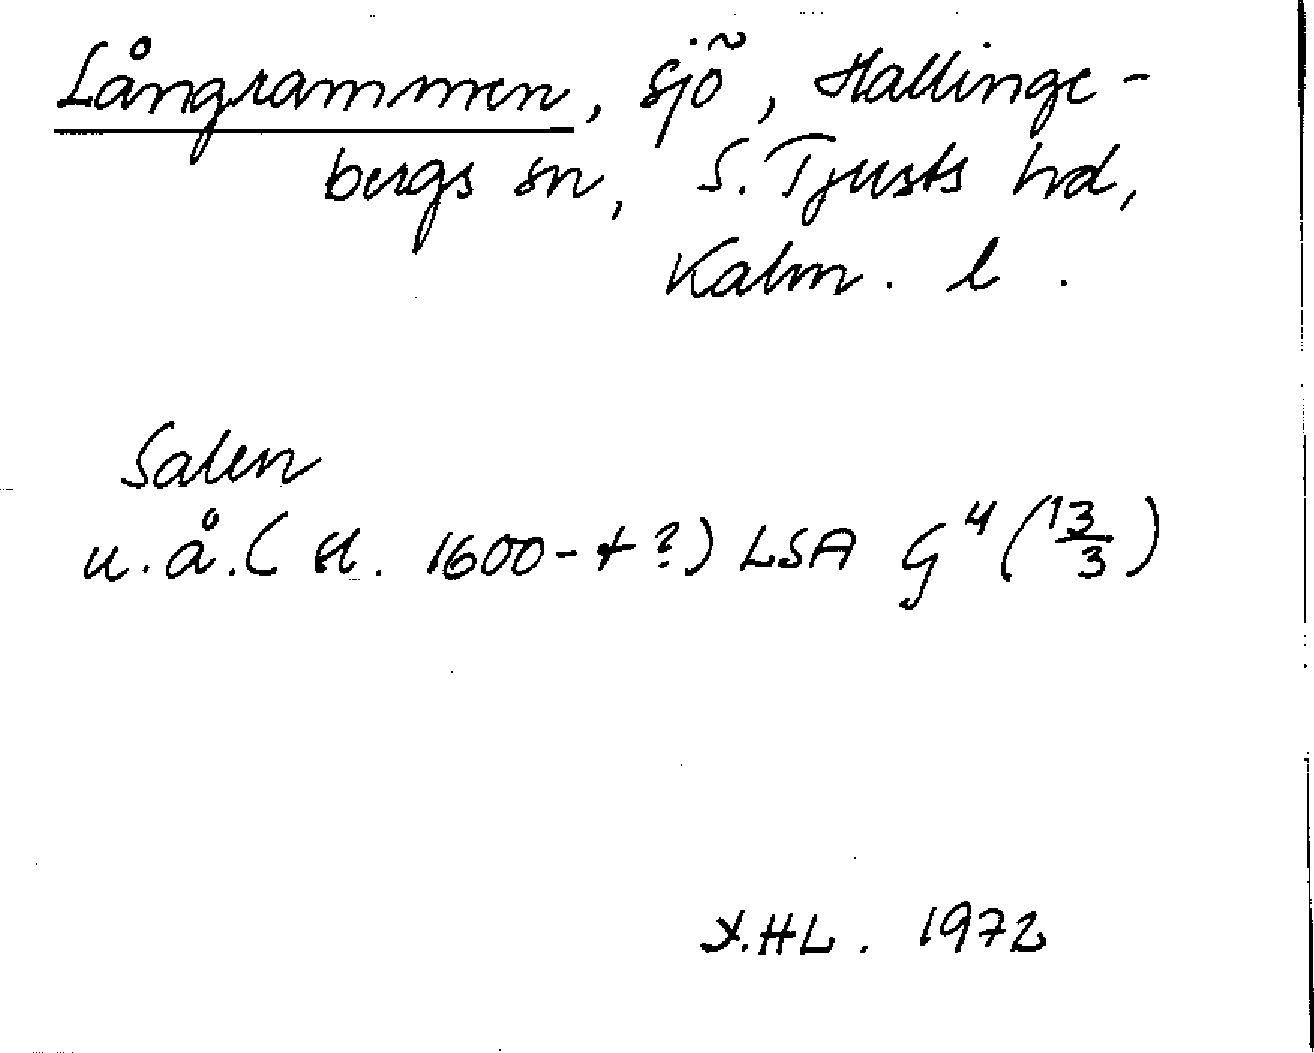 Långrammen, sjö, Hallinge-
bergs sn, S. Tjusts hd,
Kalm. l.
Salen
u.å. ( sl. 1600-t ?) LSA G⁴ (13/3)
HL. 1972